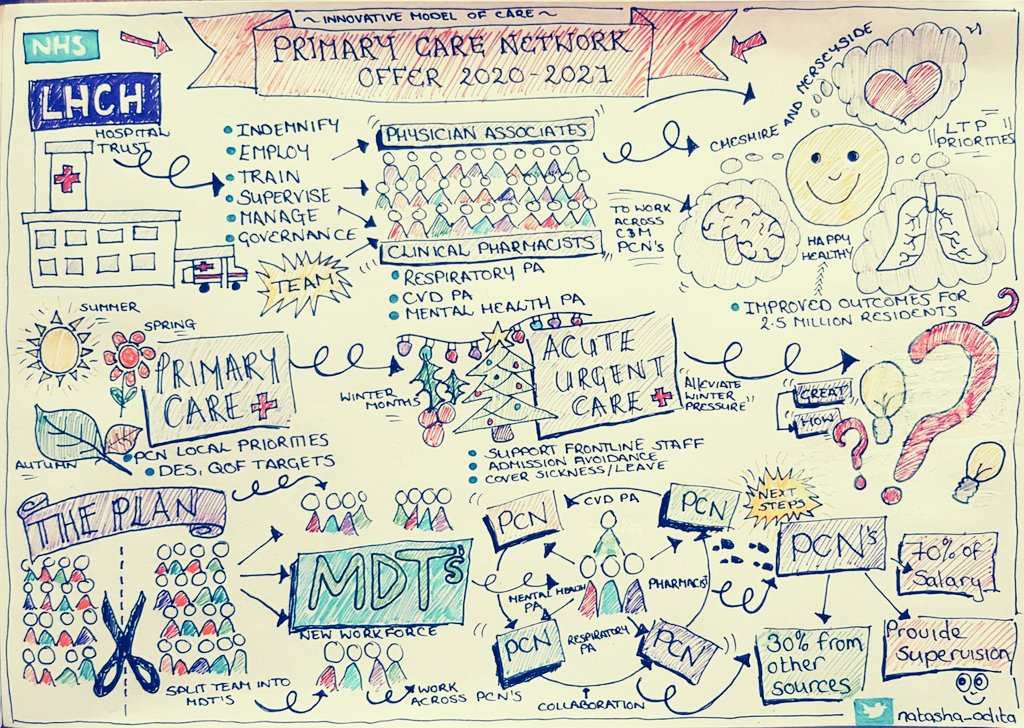 ~ INNOVATIVE MODEL OF CARE ~
NHS
PRIMARY CARE NETWORK
OFFER 2020-2021
LHCH
HOSPITAL
TRUST
INDEMNIFY
EMPLOY
TRAIN
SUPERVISE
MANAGE
GOVERNANCE
TEAM
PHYSICIAN ASSOCIATES
CLINICAL PHARMACISTS
RESPIRATORY PA
CVD PA
MENTAL HEALTH PA
TO WORK
ACROSS
C&M
PCN's
CHESHIRE AND MERSEYSIDE
"LTP"
PRIORITIES
HAPPY
HEALTHY
IMPROVED OUTCOMES FOR
2.5 MILLION RESIDENTS
SUMMER
SPRING
AUTUMN
PRIMARY
CARE
PCN LOCAL PRIORITIES
DES, QOF TARGETS
WINTER
MONTHS
ACUTE
URGENT
CARE
SUPPORT FRONTLINE STAFF
ADMISSION AVOIDANCE
COVER SICKNESS/LEAVE
"ALLEVIATE
WINTER
PRESSURE"
GREAT
HOW
THE PLAN
SPLIT TEAM INTO
MDT'S
MDT's
NEW WORKFORCE
WORK
ACROSS PCN'S
PCN
CVD PA
PCN
MENTAL HEALTH
PA
PHARMACIST
PCN
RESPIRATORY
PA
PCN
COLLABORATION
NEXT
STEPS
PCN's
70% of
Salary
30% from
other
sources
Provide
Supervision
natasha_adita